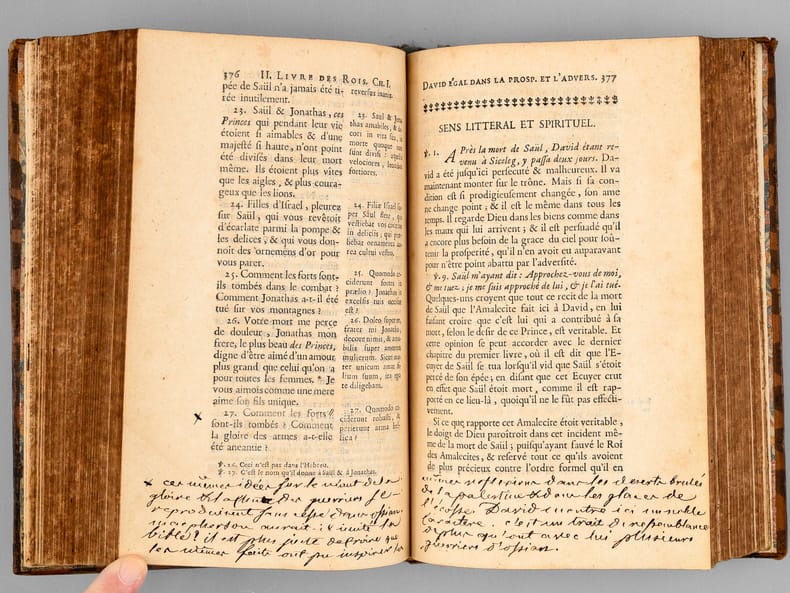 376 II. LIVRE DES ROIS. CH. I.
pée de Saül n'a jamais été ti-
rée inutilement.
23. Saül & Jonathas, ces
Princes qui pendant leur vie
étoient si aimables & d'une
majesté si haute, n'ont point
été divisés dans leur mort
même. Ils étoient plus vîtes
que les aigles, & plus coura-
geux que les lions.
24. Filles d'Israel, pleurez
sur Saül, qui vous revêtoit
d'écarlate parmi la pompe &
les delices, & qui vous don-
noit des ornemens d'or pour
vous parer.
25. Comment les forts sont-
ils tombés dans le combat ?
Comment Jonathas a-t-il été
tué sur vos montagnes ?
26. Votre mort me perce
de douleur, Jonathas mon
frere, le plus beau des Princes,
digne d'être aimé d'un amour
plus grand que celui qu'on a
pour toutes les femmes. * Je
vous aimois comme une mere
aime son fils unique.
x
27. Comment les forts
sont-ils tombés ? Comment
la gloire des armes a-t-elle
été aneantie ?
reversus inanis.
23. Saul & Jona
thas amabiles, & de
cori in vita sua, in
morte quoque non
sunt divisi : aquilis
velociores, leonibus
fortiores.
24. Filiæ Israel su
per Saul flete, qui
vestiebat vos coccino
in deliciis, qui præ
bebat ornamenta au
rea cultui vestro.
25. Quomodo ce
ciderunt fortes in
prælio ? Jonathas in
excelsis tuis occisus
est ?
26. Doleo super te,
frater mi Jonatha,
decore nimis, & ama
bilis super amorem
mulierum. Sicut ma
ter unicum amat fi
lium suum, ita ego
te diligebam.
27. Quomodo ce
ciderunt robusti, &
perierunt arma bel
lica ?
℣. 26. Ceci n'est pas dans l'Hebreu.
℣. 27. C'est le nom qu'il donne à Saül & à Jonathas.
x ces mêmes idées sur le néant de la
gloire & la des guerriers se
reproduisent sans cesse dans ossian
macpherson auroit-il imité la
bible ? il est plus juste de croire que
les mêmes faits ont pu inspirer les
DAVID EGAL DANS LA PROSP. ET L'ADVERS. 377
SENS LITTERAL ET SPIRITUEL.
℣. 1. APrès la mort de Saül, David étant re-
venu à Siceleg, y passa deux jours. Da-
vid a été jusqu'ici persecuté & malheureux. Il va
maintenant monter sur le trône. Mais si sa con-
dition est si prodigieusement changée, son ame
ne change point ; & il est le même dans tous les
temps. Il regarde Dieu dans les biens comme dans
les maux qui lui arrivent ; & il est persuadé qu'il
a encore plus besoin de la grace du ciel pour soû-
tenir la prosperité, qu'il n'en avoit eu auparavant
pour n'être point abattu par l'adversité.
℣. 9. Saül m'ayant dit : Approchez-vous de moi,
& me tuez ; je me suis approché de lui, & je l'ai tué.
Quelques-uns croyent que tout ce recit de la mort
de Saül que l'Amalecite fait ici à David, en lui
faisant croire que c'est lui qui a contribué à sa
mort, selon le desir de ce Prince, est veritable. Et
cette opinion se peut accorder avec le dernier
chapitre du premier livre, où il est dit que l'E-
cuyer de Saül se tua lorsqu'il vid que Saül s'étoit
percé de son épée ; en disant que cet Ecuyer crut
en effet que Saül étoit mort, comme il est rap-
porté en ce lieu-là, quoiqu'il ne le fût pas effecti-
vement.
Si ce que rapporte cet Amalecite étoit veritable,
le doigt de Dieu paroîtroit dans cet incident mê-
me de la mort de Saül ; puisqu'ayant fauvé le Roi
des Amalecites, & reservé tout ce qu'ils avoient
de plus précieux contre l'ordre formel qu'il en
mêmes reflexions dans les deserts brulés
de la palestine & dans les glaces de
l'ecosse. David montre ici un noble
caractere. c'est un trait de ressemblance
de plus qu'on a avec lui plusieurs
guerriers d'ossian.